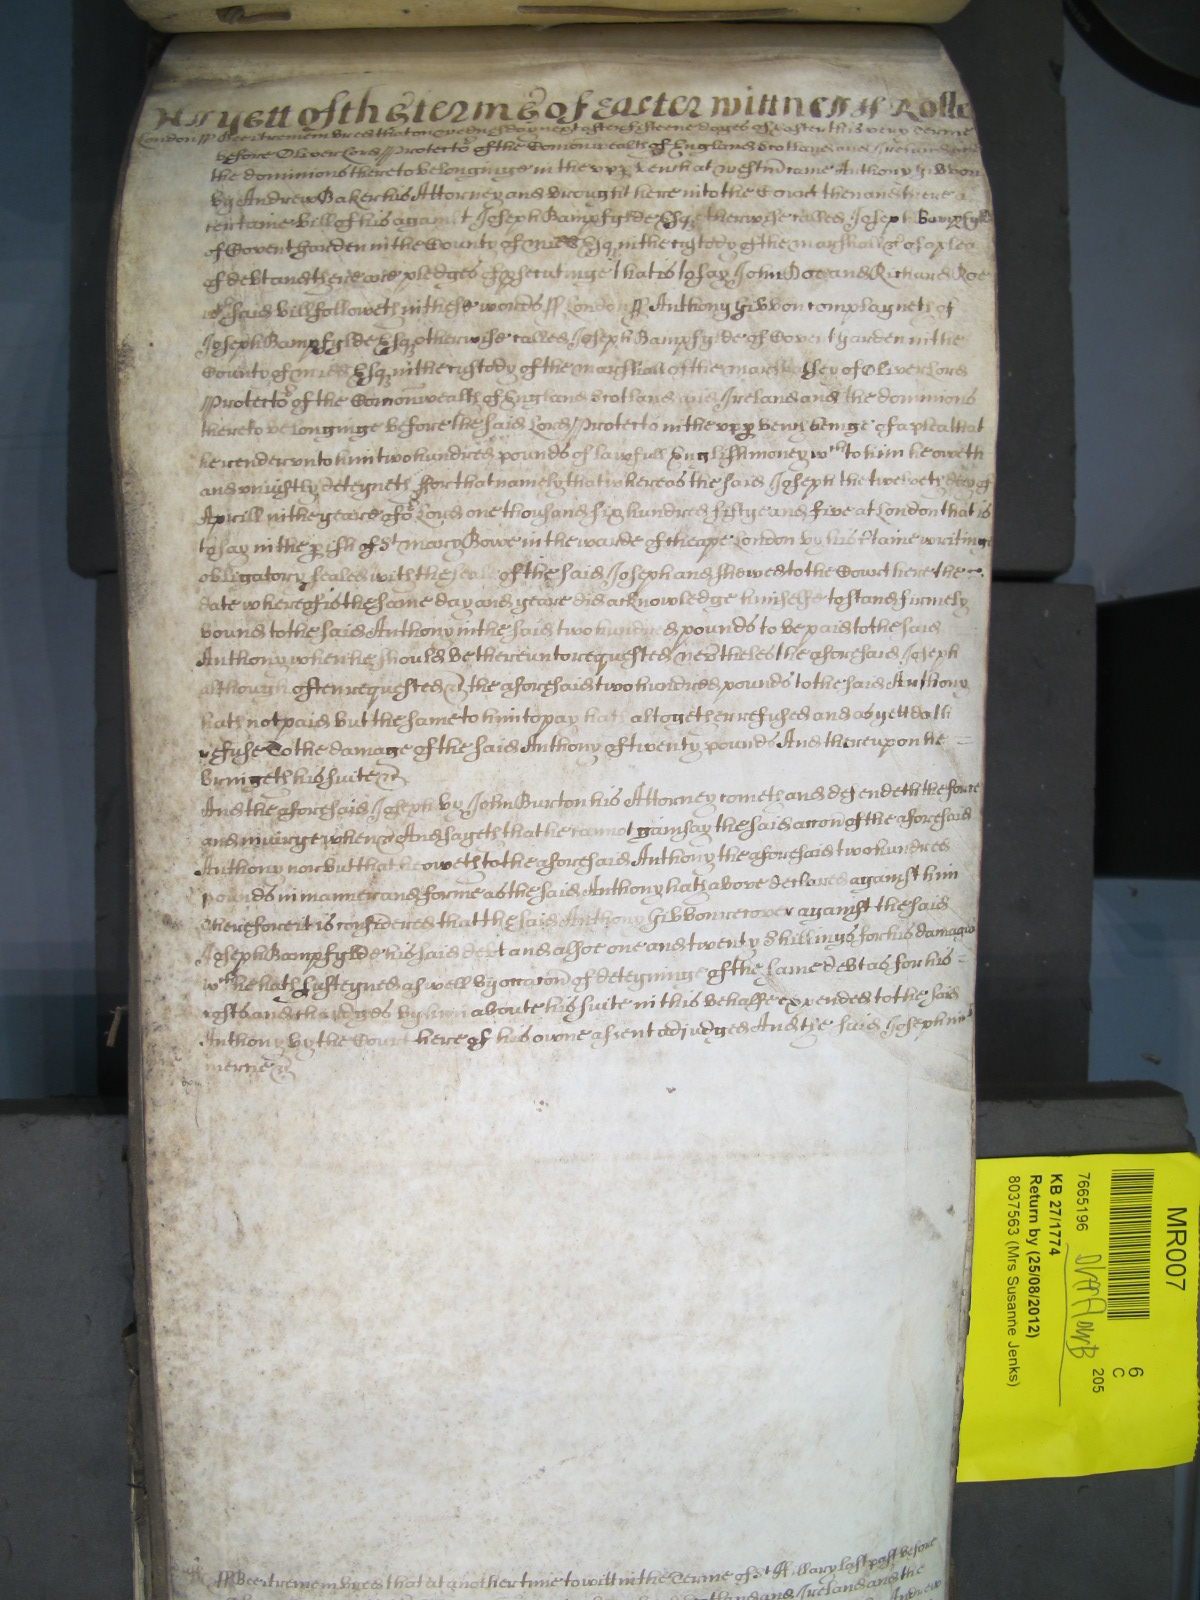 As yett of the terme of Easter wittness Rolle
London ss Bee it remembred that on wednesday next after fifteene dayes of Easter this very terme
before Oliver Lord Protector of the Comonwealth of England Scotland and Ireland and
the dominions thereto belonginge in the upp bench at Westmr came Anthony Gibbon
by Andrew Baker his Attorney and brought here into the Court then and there a
certaine bill of his against Joseph Bampfylde Esq otherwise called Joseph Bampfylde
of Covent garden in the County of Midd Esq in the custody of the marshall &c of a plea
of debt and there are pledges of psecutinge that is to say John Doe and Richard Roe
wch said bill followeth in these words ss London ss Anthony Gibbon complayneth of
Joseph Bampfylde Esq otherwise called Joseph Bampfylde of Covent garden in the
County of Midd Esq in the custody of the marshall of the marshalsey of Oliver Lord
Protector of the Comonwealth of England Scotland and Ireland and the dominions
thereto belonginge before the said Lord Protector in the upp bench beinge of a plea that
he render unto him two hundred pounds of lawfull English money wch to him he oweth
and uniustly deteyneth ffor that namely that whereas the said Joseph the twelveth day of
Aprill in the yeare of or Lord one thousand six hundred fiftye and five at London that is
to say in the pish of St mary Bowe in the warde of cheape London by his ctaine writinge
obligatory sealed with the seale of the said Joseph and shewed to the Court here the
date whereof is the same day and yeare did acknowledge himselfe to stand firmely
bound to the said Anthony in the said two hundred pounds to be paid to the said
Anthony when he should be thereunto requested neverthelesse the aforesaid Joseph
although often requested &c the aforesaid two hundred pounds to the said Anthony
hath not paid but the same to him to pay hath altogether refused and as yett doth
refuse To the damage of the said Anthony of twenty pounds And thereupon he
bringeth his suite &c
And the aforesaid Joseph by John Burton his Attorney cometh and defendeth the force
and iniurye when &c And sayeth that he cannot gainsay the said accon of the aforesaid
Anthony nor but that he oweth to the aforesaid Anthony the aforesaid two hundred
pounds in manner and forme as the said Anthony hath above declared against him
Therefore it is considered that the said Anthony Gibbon recover against the said
Joseph Bampfylde his said debt and alsoe one and twenty shillings for his damages
wch he hath susteyned as well by occasion of deteyninge of the same debt as for his
costs and chardges by him aboute his suite in this behalfe expended to the said
Anthony by the Court here of his owne assent adjudged And the said Joseph in
mercie &c
ss Bee it remembred that at another time to witt in the Terme of St Hillary last past before
MR007
6
C
205
7665196
KB 27/1774
Return by (25/08/2012)
8037563 (Mrs Susanne Jenks)